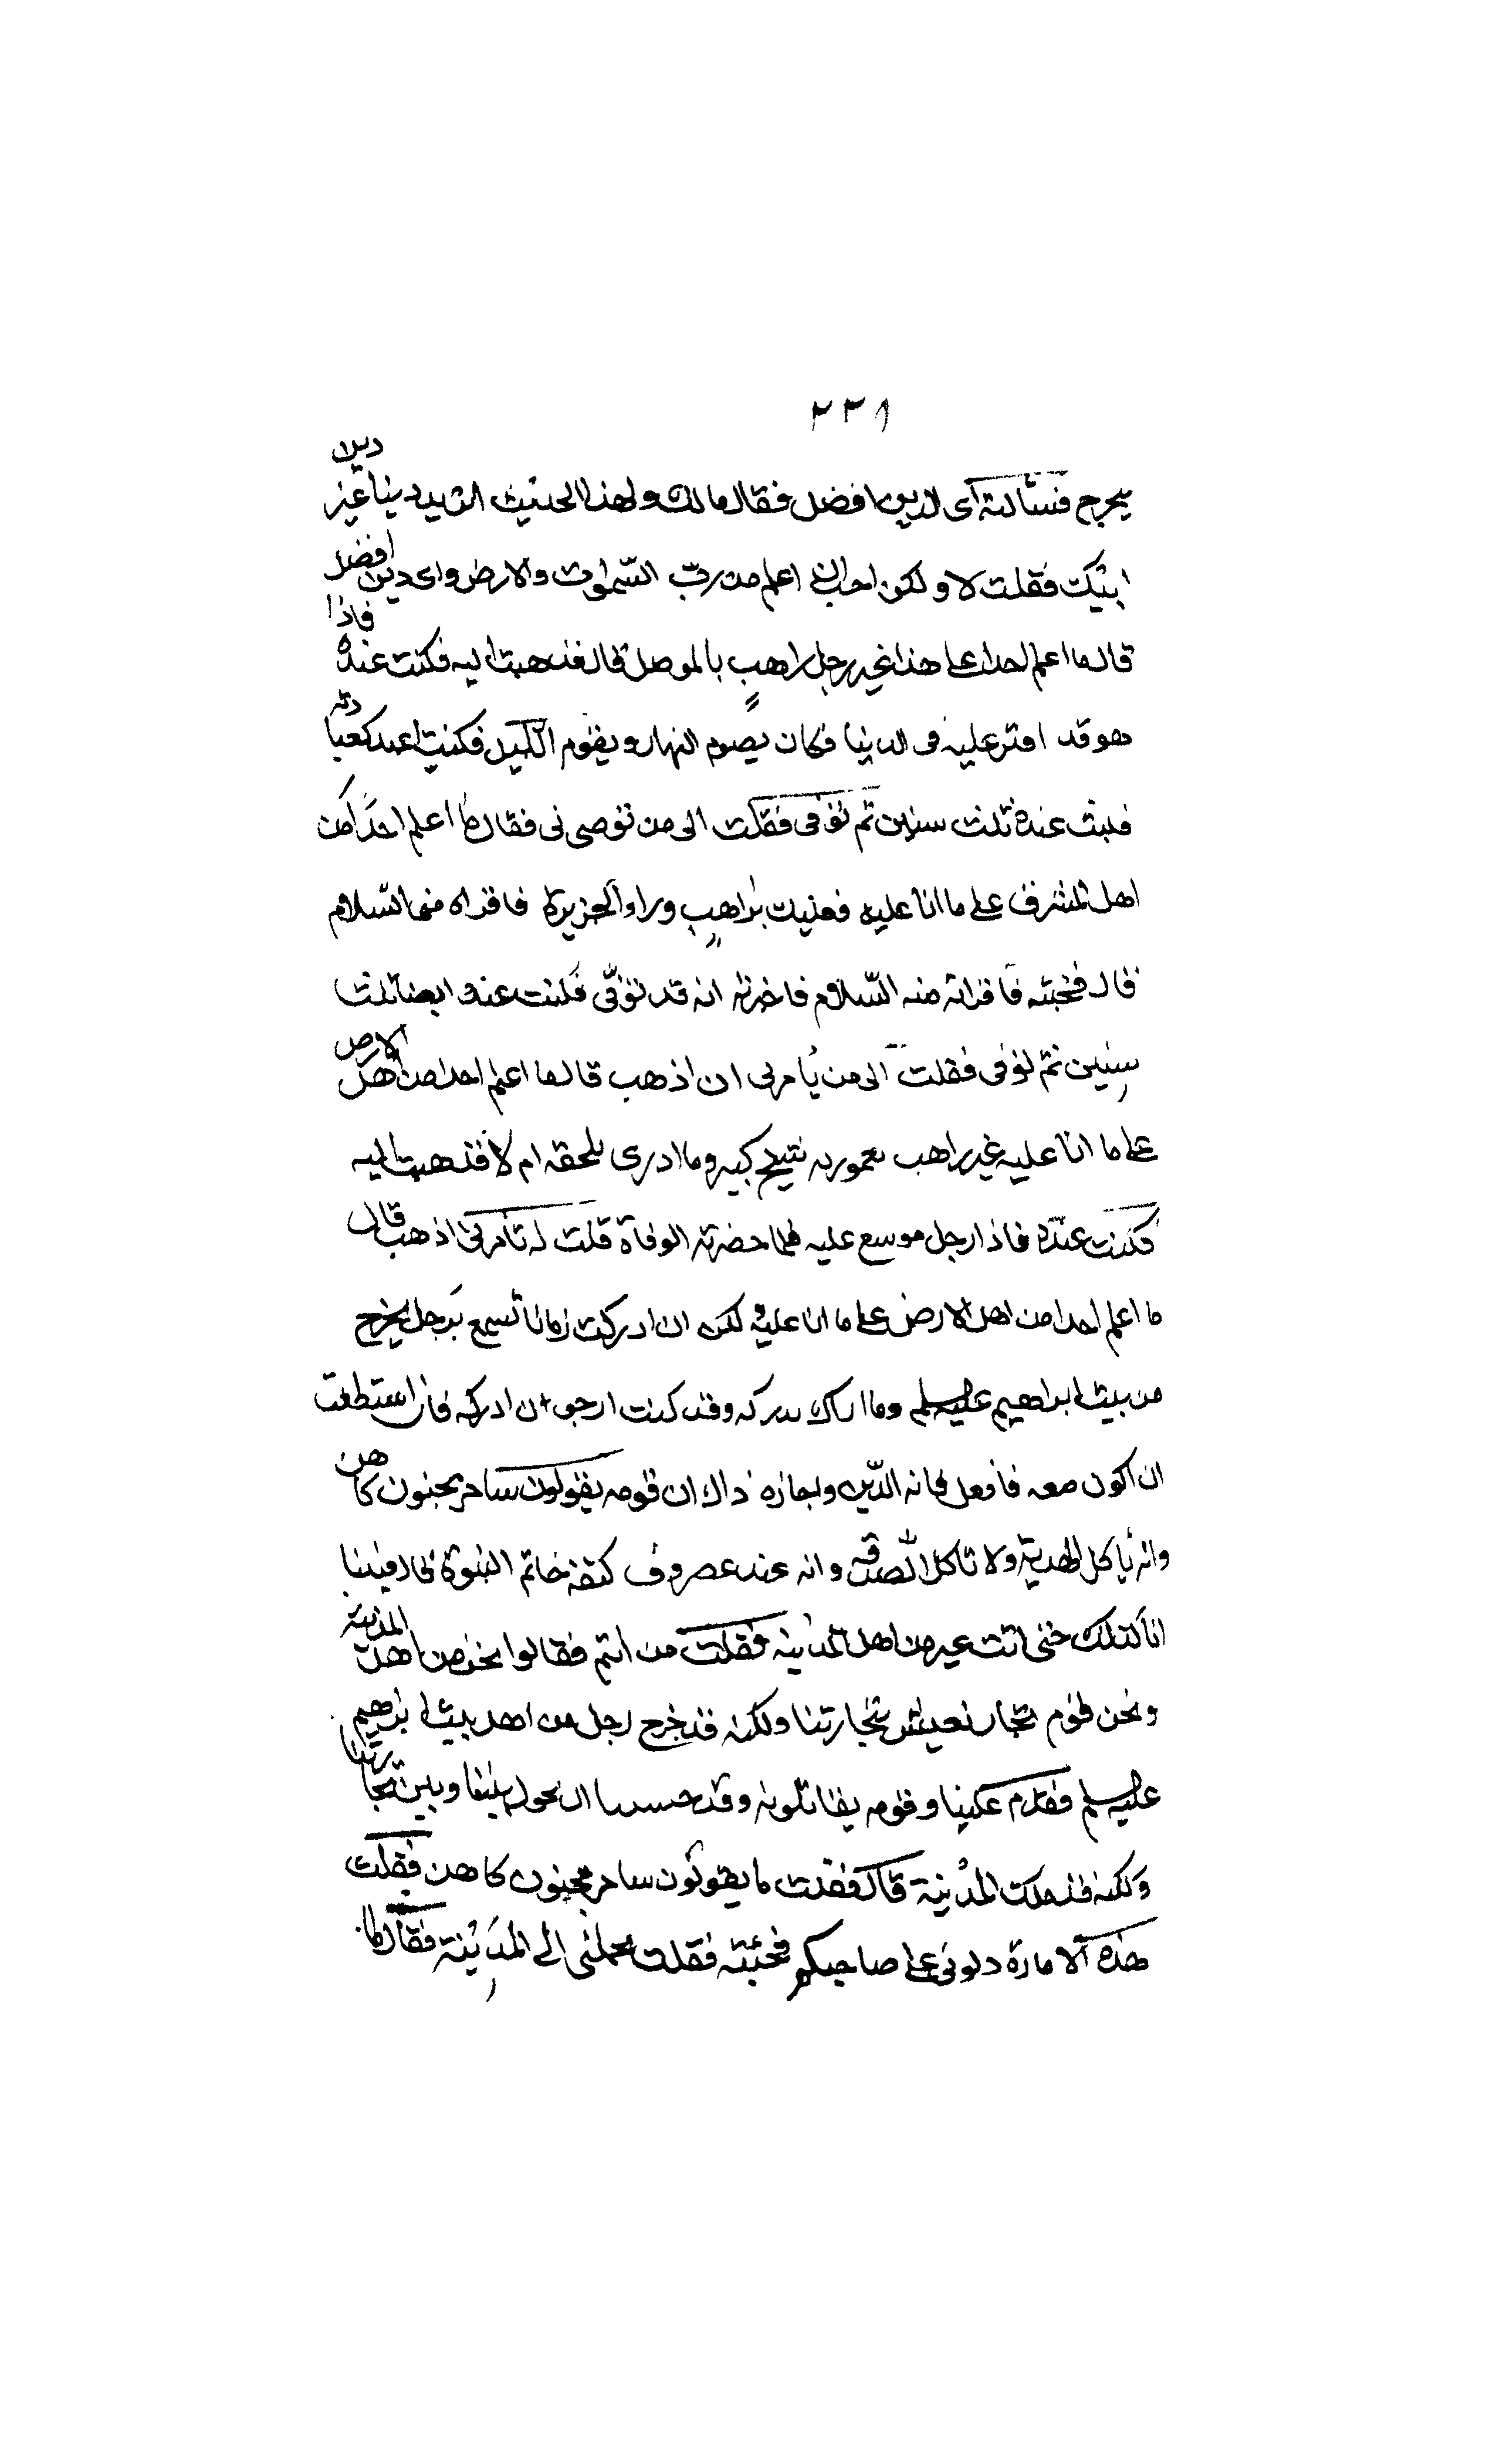 ٢٣٨
يخرج فسألته أى الدين افضل فقال مالك ولهذا الحديث اتريد دينا غير دين
ابيك فقلت لا ولكن احب ان اعلم من رب السموات والارض واى دين افضل
قال ما اعلم احدا على هذا غير رجل راهب بالموصل قال فذهبت اليه فكنت عنده فاذا
هو قد اقتر عليه فى الدنيا فكان يصوم النهار ويقوم الليل فكنت اعبد كعبادته
فلبثت عنده ثلث سنين ثم توفى فقلت الى من توصى بى فقال ما اعلم احدا من
اهل المشرق على ما انا عليه فعليك براهب وراء الجزيرة فاقراه منى السلام
قال فجئته فاقراته منه السلام فاخبرته انه قد توفى فكنت عنده ايضا ثلث
سنين ثم توفى فقلت الى من يأمرنى ان اذهب قال ما اعلم احدا من اهل الارض
على ما انا عليه غير راهب بعمورية شيخ كبير وما ادرى تلحقه ام لا فذهبت اليه
فكنت عنده فاذا رجل موسع عليه فلما حضرته الوفاة قلت له تأمرنى اذهب قال
ما اعلم احدا من اهل الارض على ما انا عليه ولكن ان ادركت زمانا تسمع برجل يخرج
من بيت ابراهيم عليه السلم وما اراك تدركه وقد كنت ارجو ان ادركه فان استطعت
ان اكون معه فافعل فانه الدين وامارة ذاك ان قومه يقولون ساحر مجنون كاهن
وانه ياكل الهدية ولا ياكل الصدقة وانه عند غضروف كتفه خاتم النبوة قال فبينا
انا كذلك حتى اتت عير من اهل المدينة فقلت من انتم فقالوا نحن من اهل المدينة
ونحن قوم تجار نعيش بتجارتنا ولكنه قد خرج رجل من اهل بيت ابرهيم
عليه السلم فقدم علينا وقومه يقاتلونه وقد خشينا ان يحول بيننا وبين تجارتنا
ولكنه قد ملك المدينة قال فقلت ما يقولون ساحر مجنون كاهن فقلت
هذه الامارة دلونى على صاحبكم فجئته فقلت تحملنى الى المدينة فقال ما